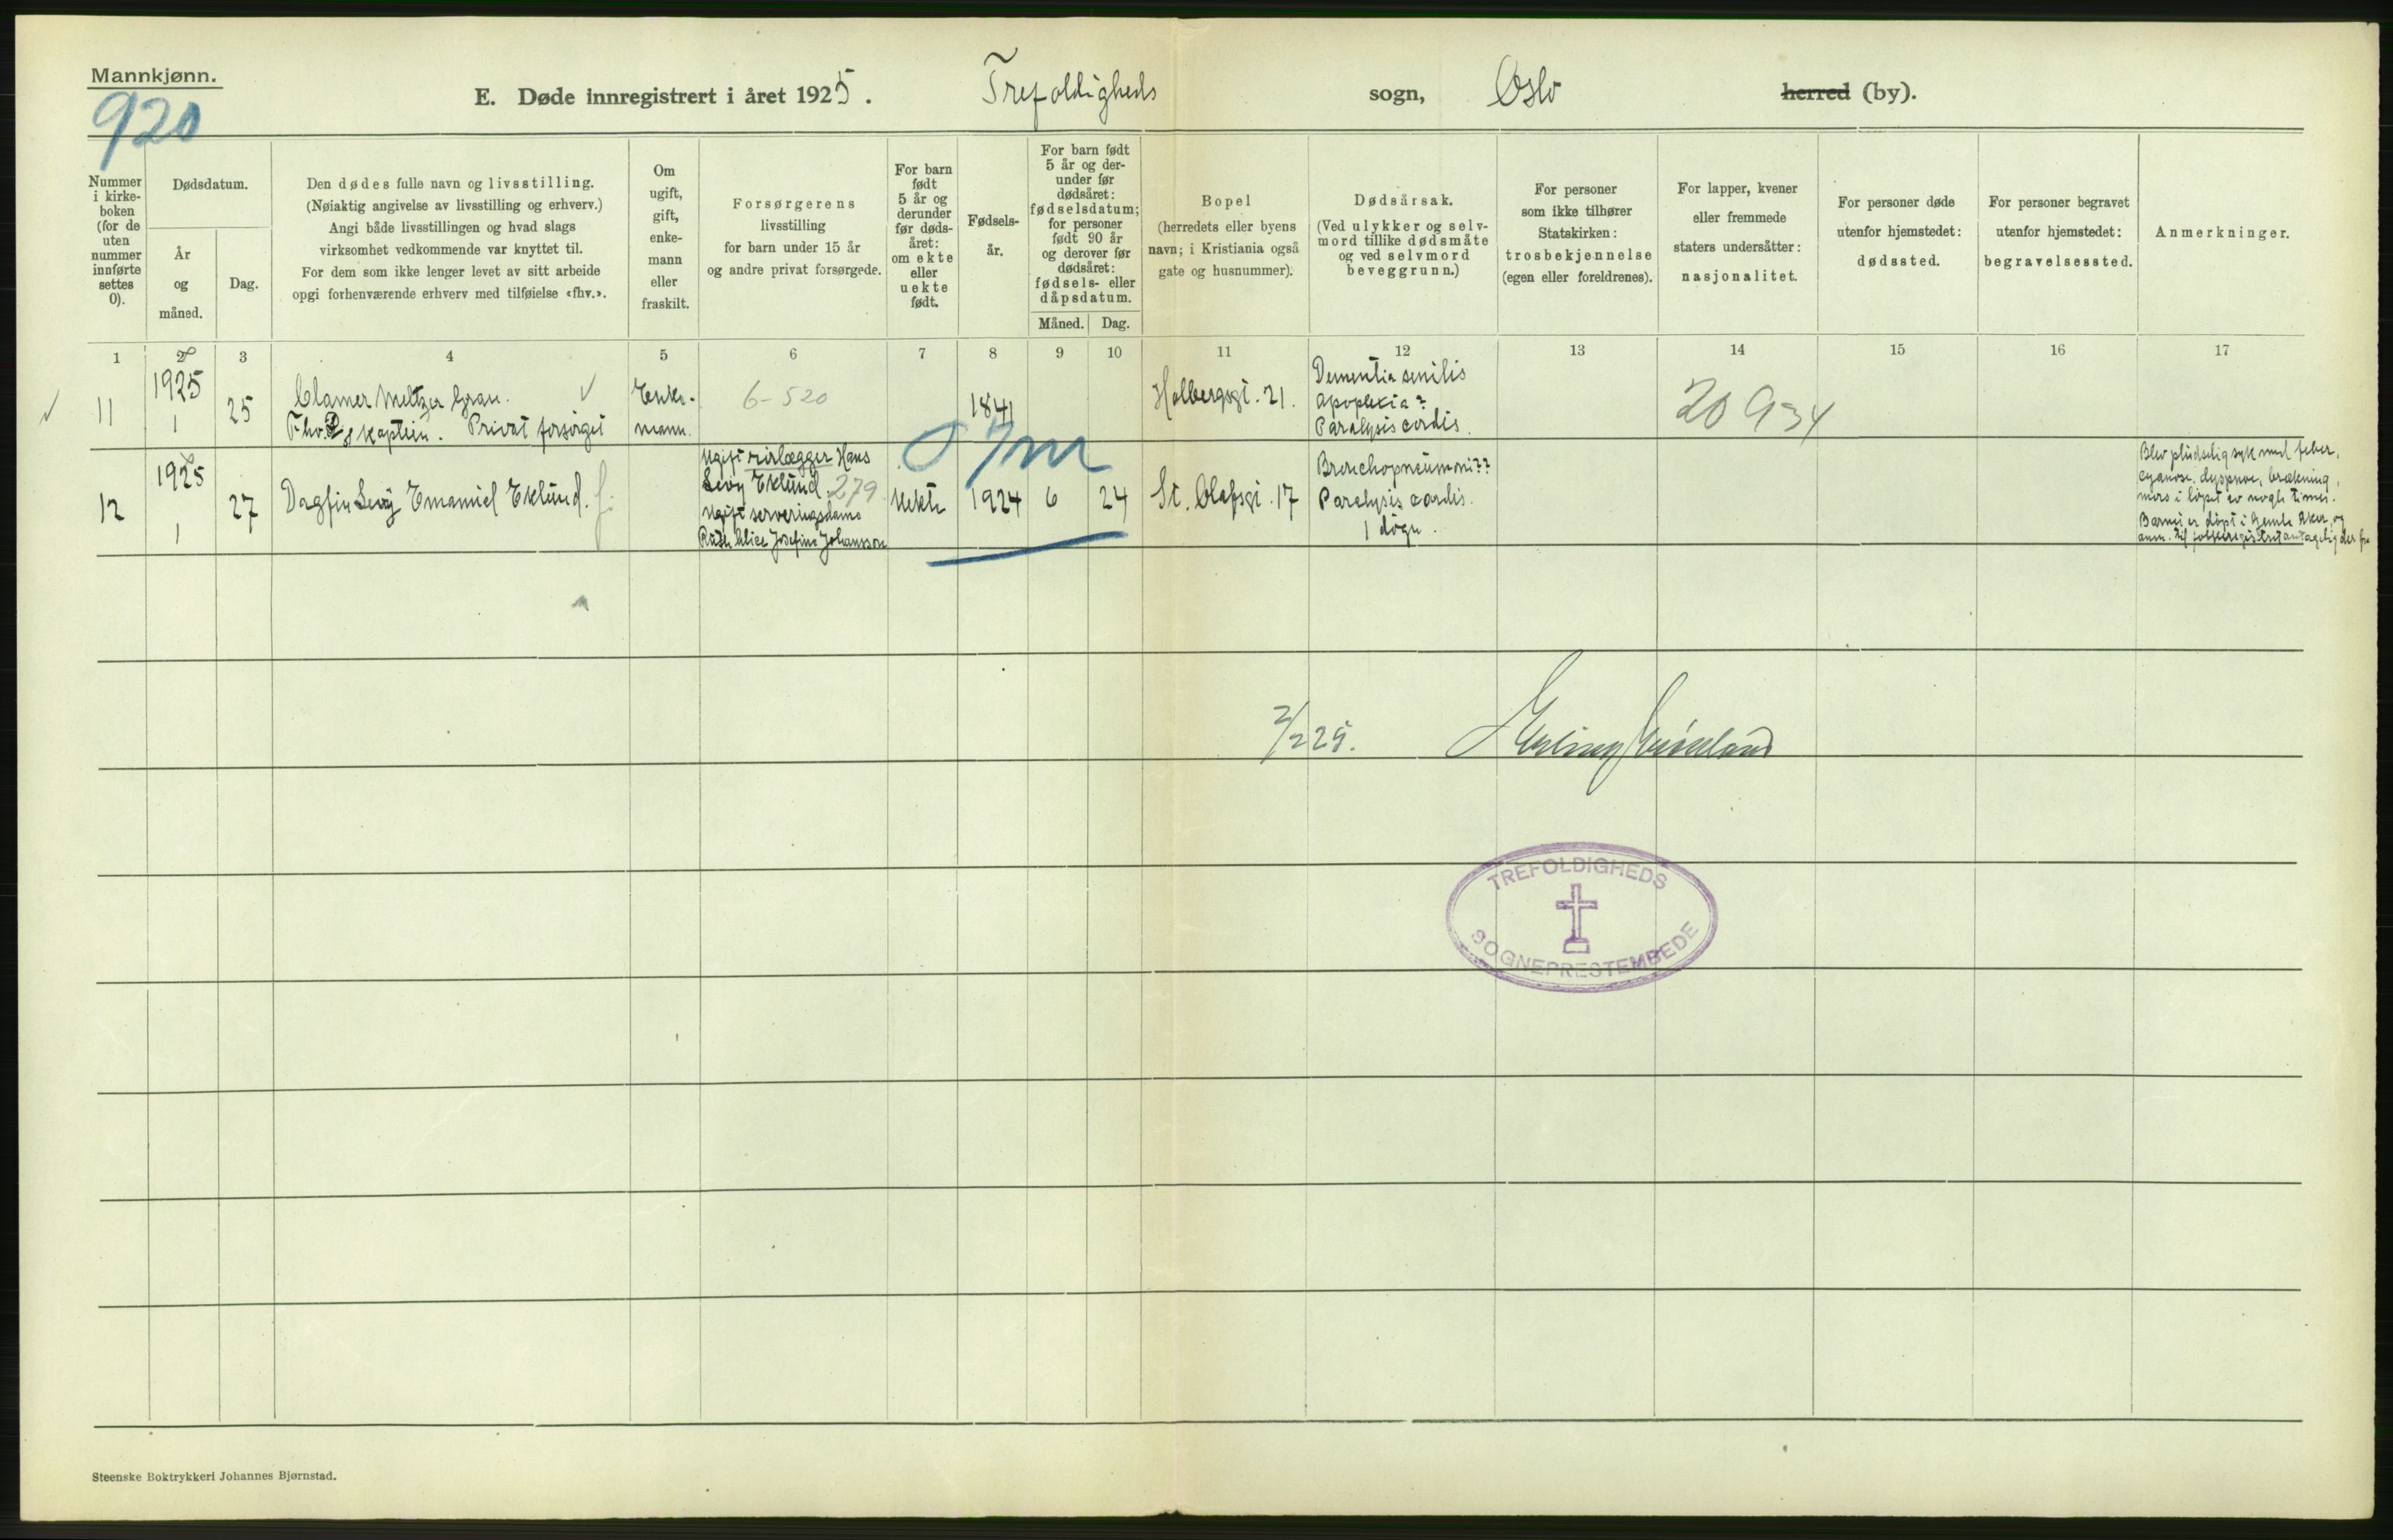 Mannkjønn.
920
E. Døde innregistrert i året 1925. Trefoldigheds sogn, Oslo herred (by).
Nummer i kirke-boken (for de uten nummer innførte settes 0).
Dødsdatum.
År og måned.
Dag.
Den dødes fulle navn og livsstilling.
(Nøiaktig angivelse av livsstilling og erhverv.)
Angi både livsstillingen og hvad slags
virksomhet vedkommende var knyttet til.
For dem som ikke lenger levet av sitt arbeide
opgi forhenværende erhverv med tilføielse «fhv.».
Om ugift, gift, enke-mann eller fraskilt.
Forsørgerens
livsstilling
for barn under 15 år
og andre privat forsørgede.
For barn født 5 år og derunder før døds-året: om ekte eller uekte født.
Fødsels-år.
For barn født 5 år og der-under før dødsåret: fødselsdatum; for personer født 90 år og derover før dødsåret: fødsels- eller dåpsdatum.
Måned. Dag.
Bopel
(herredets eller byens
navn; i Kristiania også
gate og husnummer).
Dødsårsak.
(Ved ulykker og selv-
mord tillike dødsmåte
og ved selvmord
beveggrunn.)
For personer
som ikke tilhører
Statskirken:
trosbekjennelse
(egen eller foreldrenes).
For lapper, kvener
eller fremmede
staters undersåtter:
nasjonalitet.
For personer døde
utenfor hjemstedet:
dødssted.
For personer begravet
utenfor hjemstedet:
begravelsessted.
Anmerkninger.
1 2 3 4 5 6 7 8 9 10 11 12 13 14 15 16 17
11
1925
1
25
Clamer Meltzer Gran.
Fhv. kaptein. Privat forsørget
Enke-
mann.
6-520
1841
Holbergsgt. 21.
Dementia senilis
Apoplexia?
Paralysis cordis.
20 934
12
1925
1
27
Dagfin Levy Emanuel Eklund.
Ugift rørlægger Hans
Levy Eklund 279
Ugift serveringsdame
Ruth Alice Josefine Johansson
Uekte
1924
6
24
St. Olafsgt. 17
Bronchopneumoni??
Paralysis cordis.
1 døgn.
Blev pludselig syk med feber,
cyanose, dyspnoe, brækning,
mors i løpet av nogle timer.
Barnet er døpt i Gamle Aker, og
anm. til folkeregistret antagelig der fra
07m
2/2 25.
TREFOLDIGHEDS
SOGNEPRESTEMBEDE
Steenske Boktrykkeri Johannes Bjørnstad.